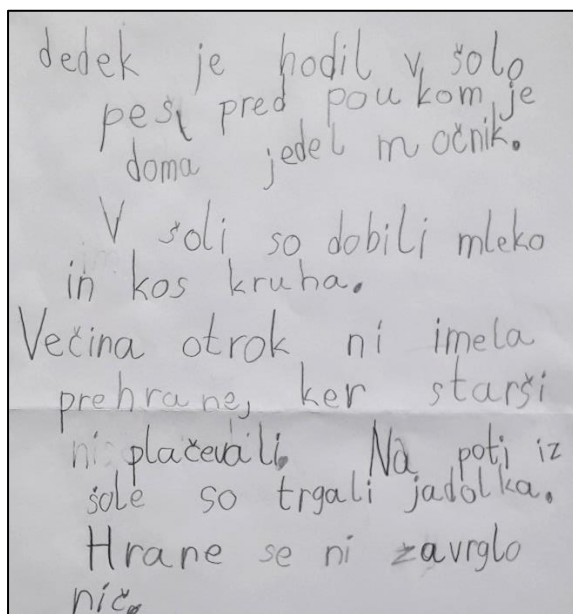 dedek je hodil v šolo
peš, pred poukom je
doma jedel močnik.
V šoli so dobili mleko
in kos kruha.
Večina otrok ni imela
prehrane, ker starši
ni plačevali. Na poti iz
šole so trgali jadolka.
Hrane se ni zavrglo
nič.